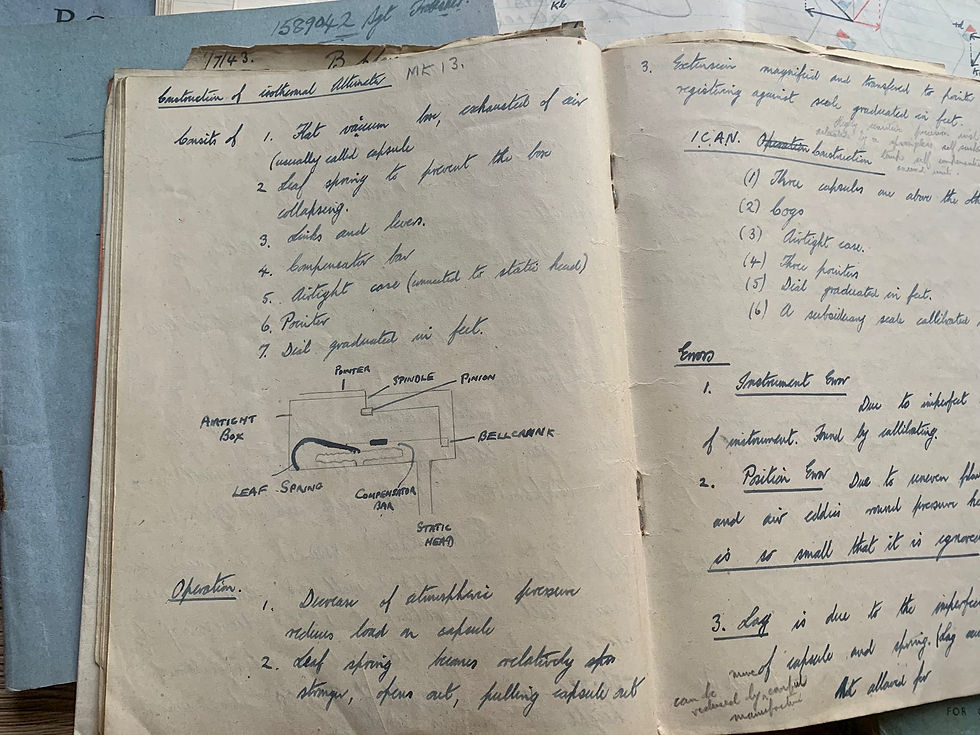 1589042 Sgt
/7/43.
MK 13.
Construction of isothermal Altimeter
Consits of 1. Flat vacuum box, exhausted of air
(usually called capsule
2 Leaf spring to prevent the box
collapsing.
3. Links and levers.
4. Compensator bar
5. Airtight case (connected to static head)
6. Pointer
7. Dial graduated in feet.
POINTER
SPINDLE
PINION
AIRTIGHT
BOX
BELLCRANK
LEAF SPRING
COMPENSATOR
BAR
STATIC
HEAD
Operation.
1. Decrease of atmospheric pressure
reduces load on capsule
2. Leaf spring becomes relatively
stronger, opens out, pulling capsule out
3. Extension magnified and transferred to pointe
registering against scale graduated in feet.
I.C.A.N. Operation Construction
(1) Three capsules one above the oth
(2) Cogs
(3) Airtight case.
(4) Three pointers
(5) Dial graduated in feet.
(6) A subsidiary scale callibrated
Errors
1. Instrument Error
Due to imperfect
of instrument. Found by callibating.
2. Position Error Due to uneven
and air eddies round pressure he
is so small that it is ignored
3. Lag is due to the imperfec
of capsule and spring. (Lag
Not allowed for
can be
reduced by careful
manufacture
FOR